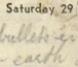 Saturday 29
bullets in
earth